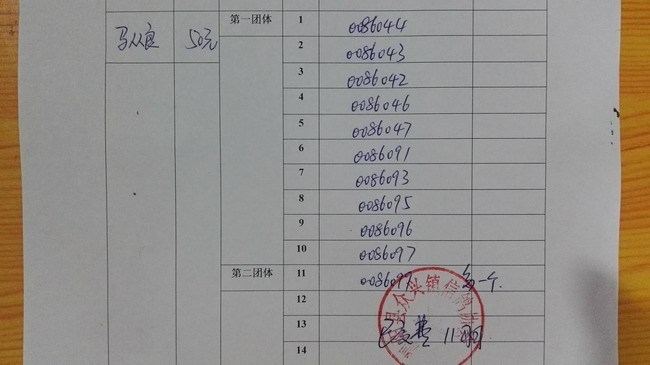 第一团体 1 0086044
马从良 50元 2 0086043
3 0086042
4 0086046
5 0086047
6 0086091
7 0086093
8 0086095
9 0086096
10 0086097
第二团体 11 0086099 多一个
12
13 已交费 11羽
14
县众兴镇信鸽协